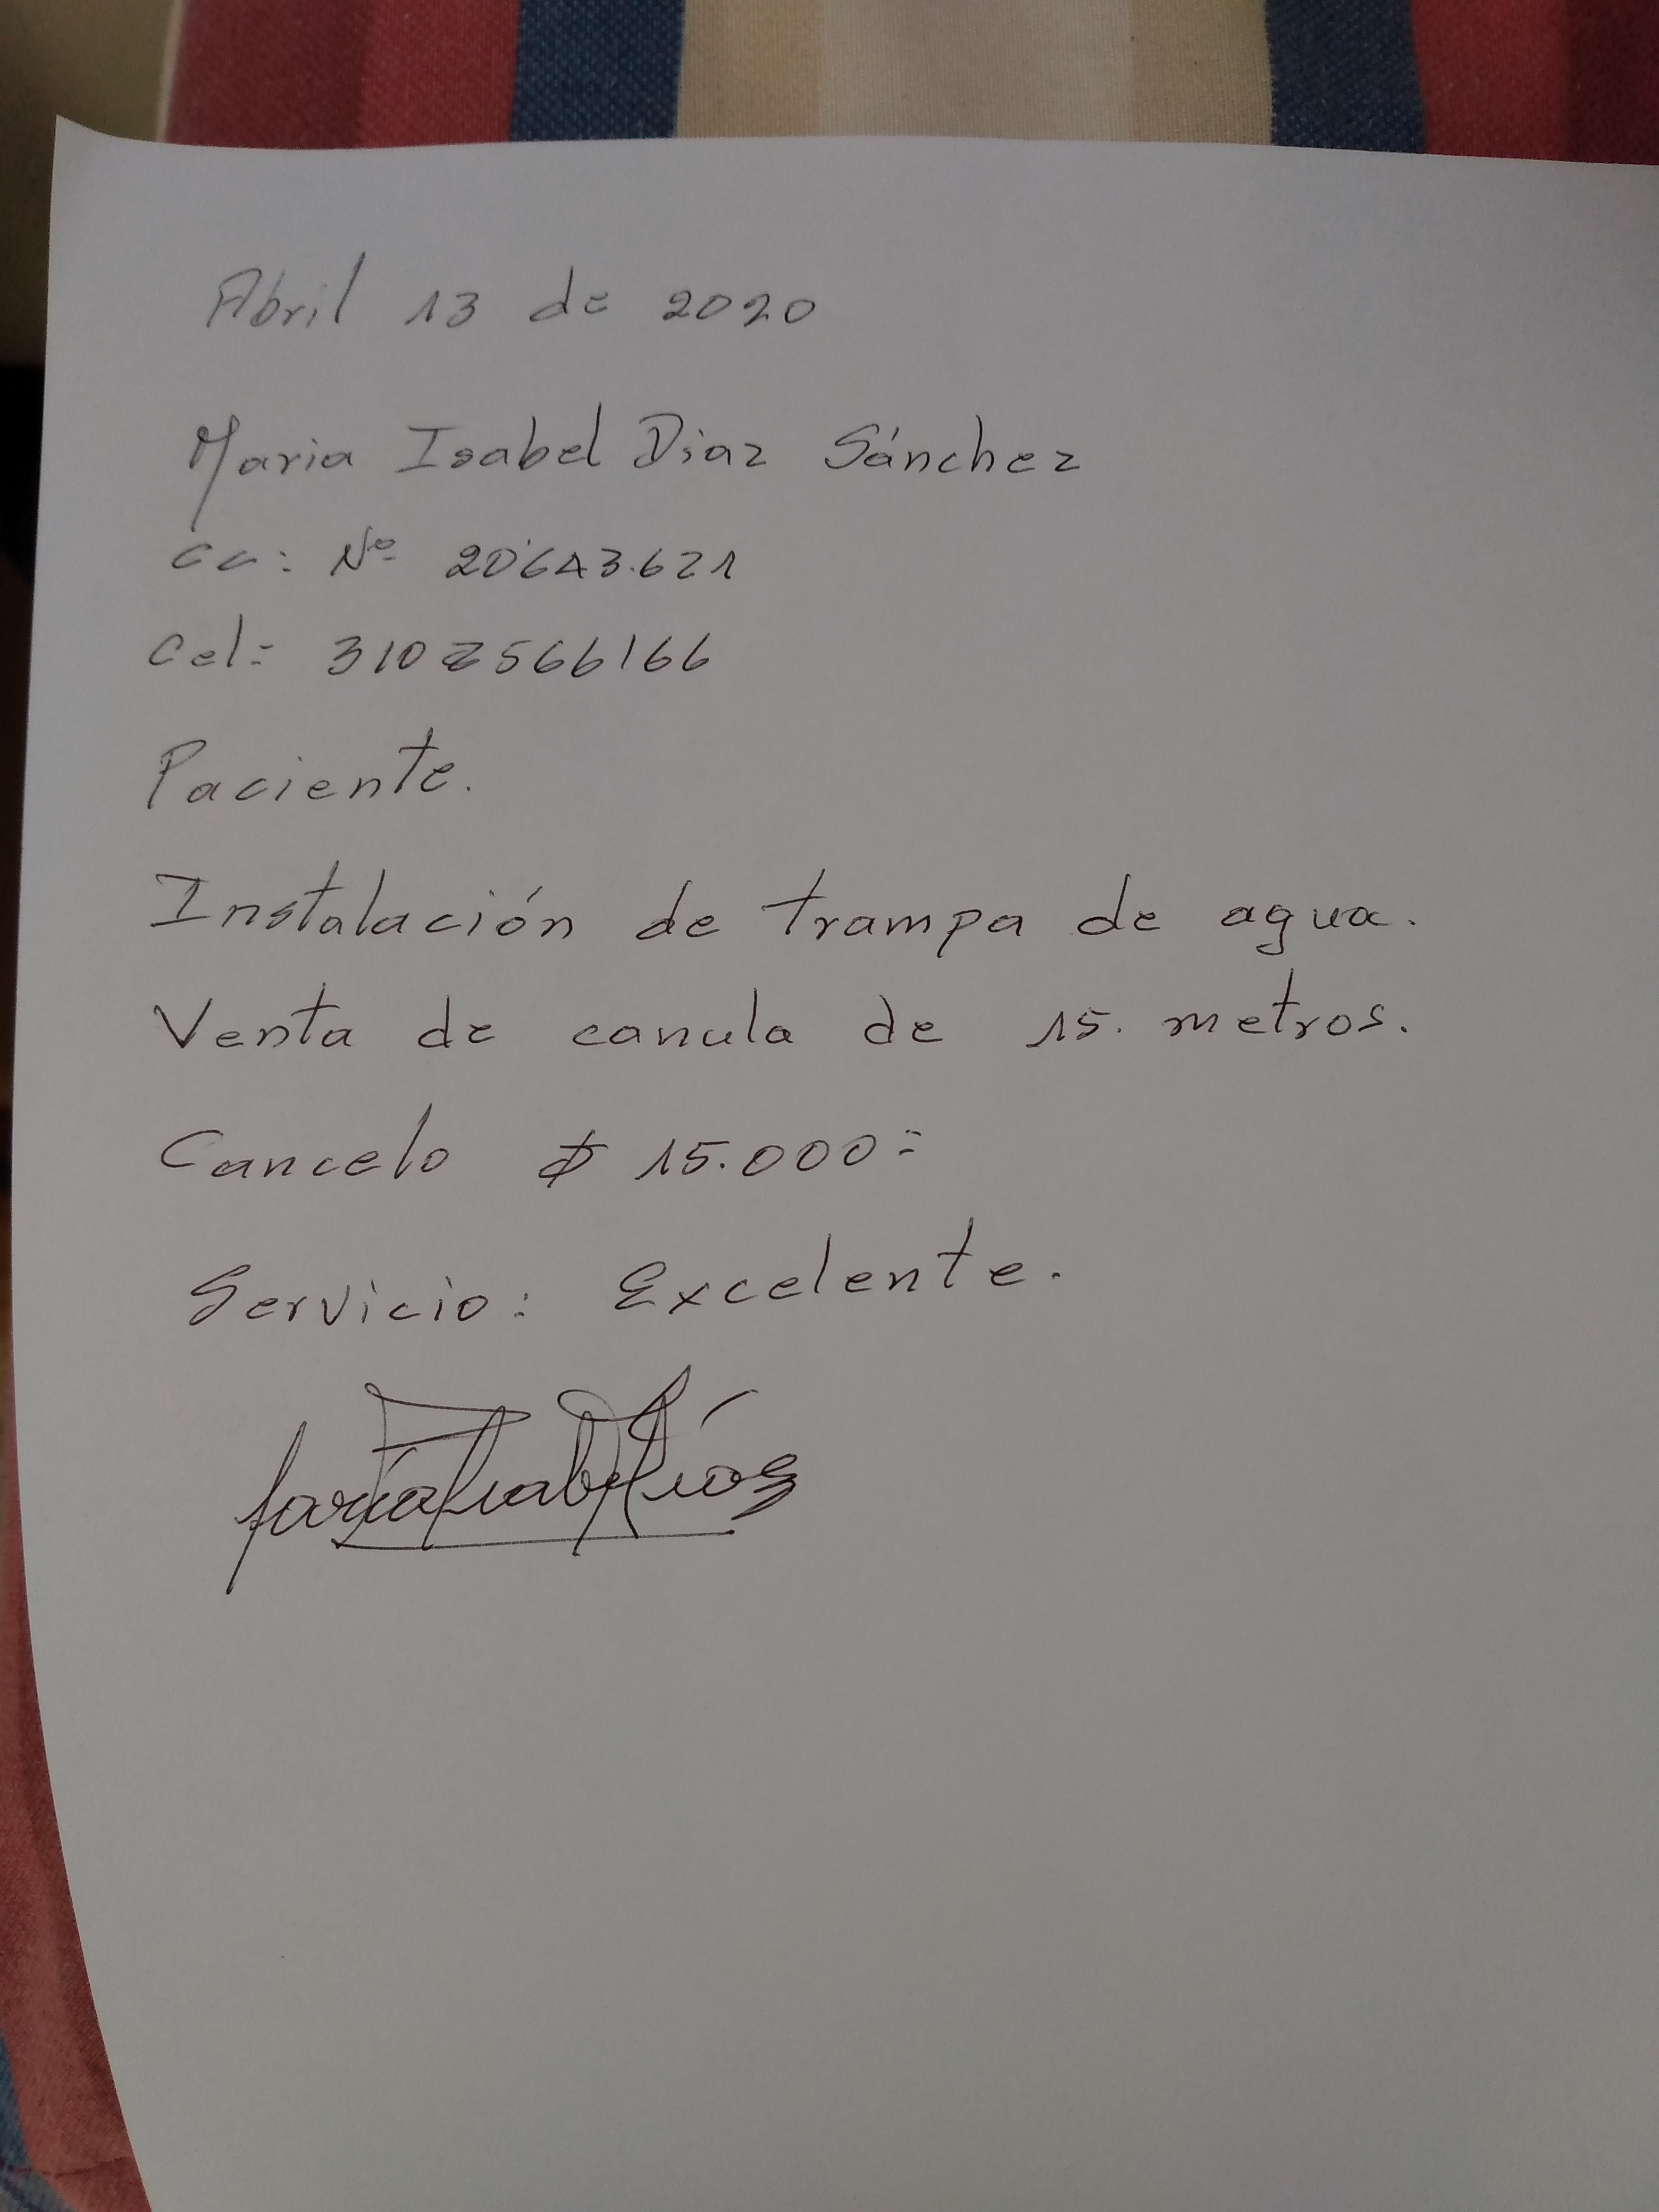 Abril 13 de 2020
Maria Isabel Diaz Sánchez
CC: Nº 20'643.621
Cel: 3102566166
Paciente.
Instalación de trampa de agua.
Venta de canula de 15. metros.
Cancelo $ 15.000=
Servicio: Excelente.